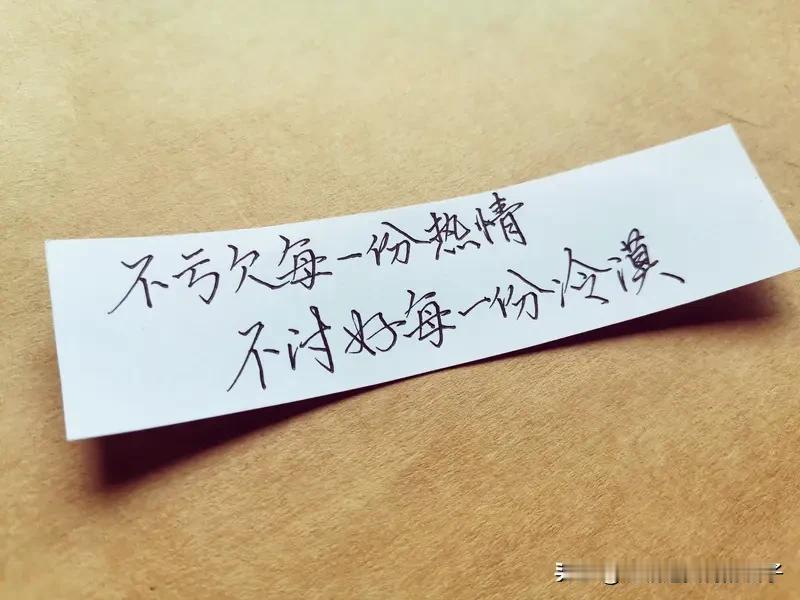 不亏欠每一份热情
不讨好每一份冷漠